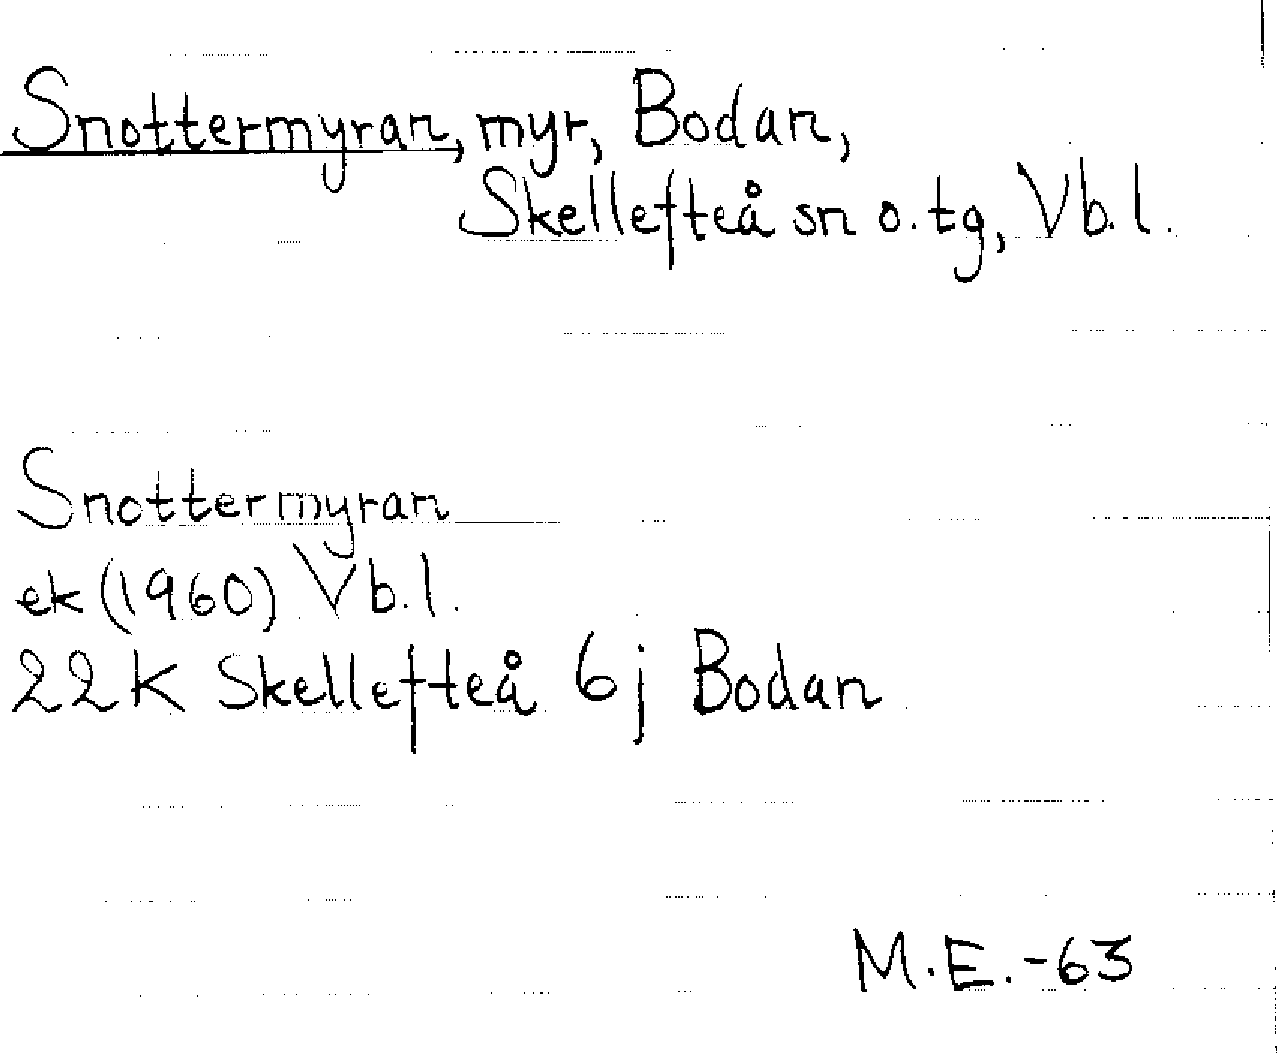 Snottermyran, myr, Bodan,
Skellefteå sn o. tg, Vb. l.
Snottermyran
ek (1960) Vb. l.
22K Skellefteå 6j Bodan
M.E.-63